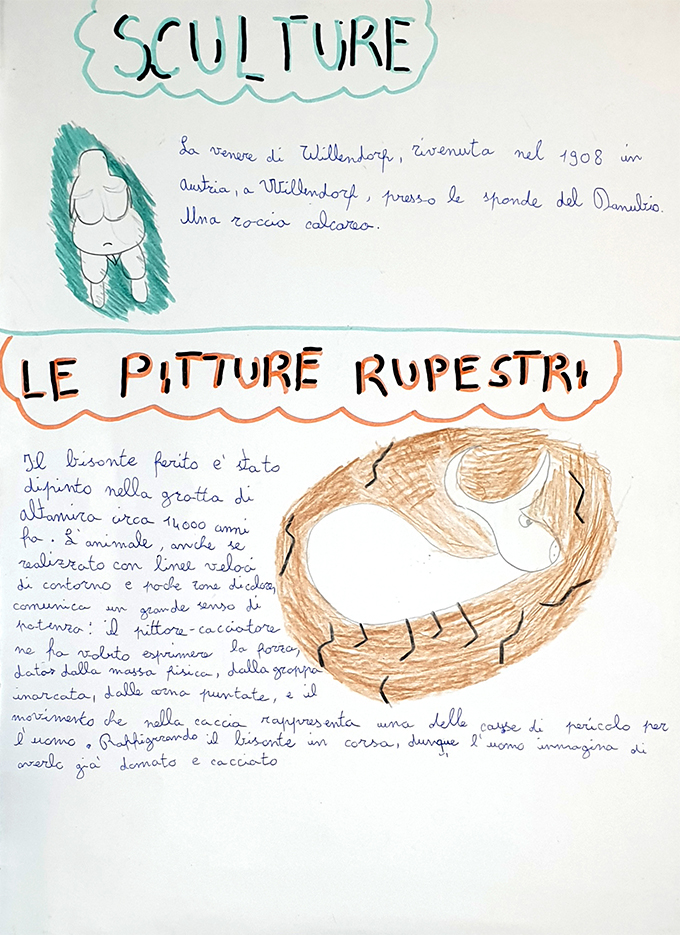 SCULTURE
La venere di Willendorf, rivenuta nel 1908 in
austria, a Willendorf, presso le sponde del Danubio.
Una roccia calcarea.
LE PITTURE RUPESTRI
Il bisonte ferito e' stato
dipinto nella grotta di
altamira circa 14000 anni
fa. L'animale, anche se
realizzato con linee veloci
di contorno e poche zone di colore,
comunica un grande senso di
potenza: il pittore-cacciatore
ne ha voluto esprimere la forza,
data dalla massa fisica, dalla groppa
inarcata, dalle corna puntate, e il
movimento che nella caccia rappresenta una delle cause di pericolo per
l'uomo. Raffigurando il bisonte in corsa, dunque l'uomo immagina di
averlo già domato e cacciato